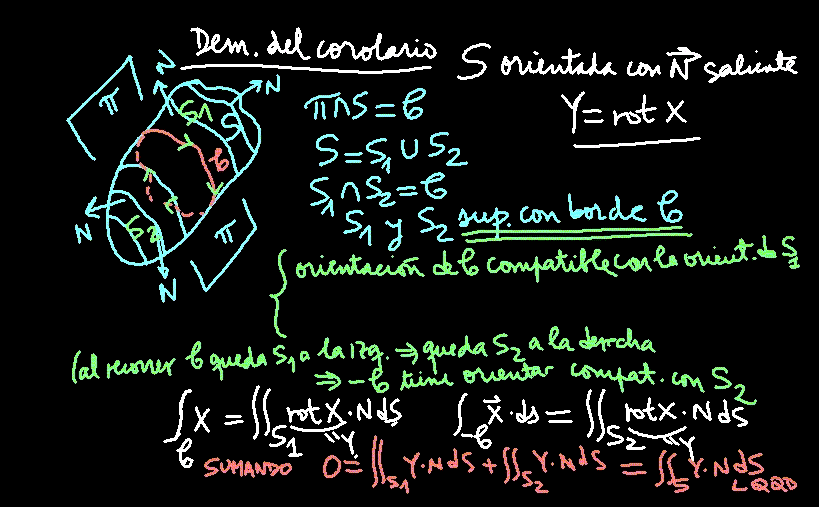 Dem. del corolario
S orientada con N⃗ saliente
Y = rot X
π∩S = C
S = S₁ ∪ S₂
S₁ ∩ S₂ = C
S₁ y S₂ sup. con borde C
π
N
N
S₁
S
C
S₂
N
N
π
{ orientación de C compatible con la orient. de S₁
(al recorrer C queda S₁ a la izq. ⇒ queda S₂ a la derecha
⇒ -C tiene orientar compat. con S₂
∫_C X = ∬_S₁ rot X · N dS    ∫_-C X⃗ · ds = ∬_S₂ rot X · N dS
= Y    = Y
SUMANDO 0 = ∬_S₁ Y · N dS + ∬_S₂ Y · N dS = ∬_S Y · N dS
LQQD